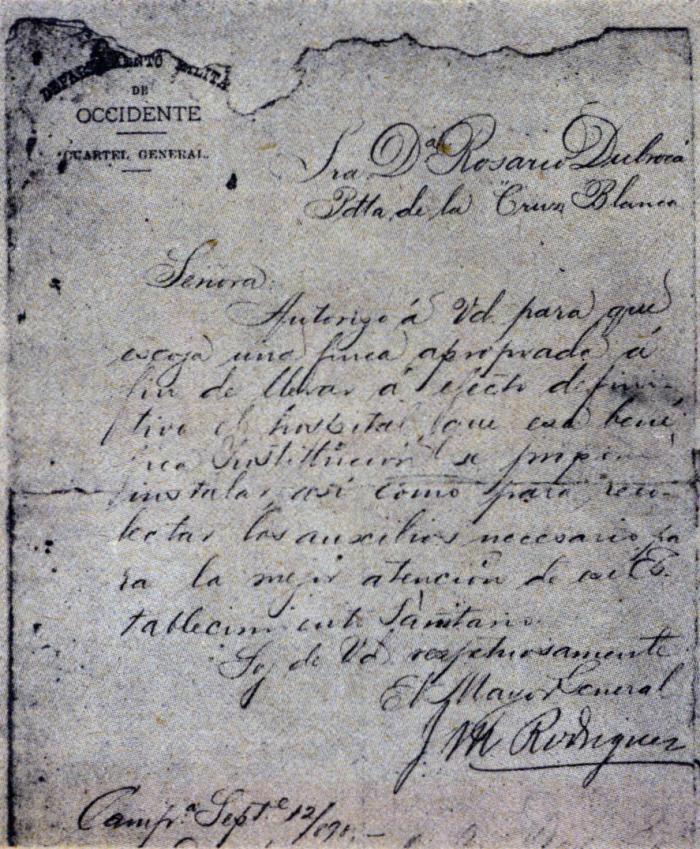 DEPARTAMENTO MILITA
DE
OCCIDENTE
CUARTEL GENERAL.
Sra Dña Rosario Dubrocá
Pdtta de la Cruz Blanca
Señora
Autorizo á Vd para que
escoja una finca apropiada á
fin de llevar á efecto defini-
tivo el hospital que esa bené
fica Institución se propone
instalar, así como para reco-
lectar los auxilios necesarios pa
ra la mejor atención de ese Es-
tablecimiento Sanitario.
Soy de Vd respetuosamente
El Mayor General
J M Rodriguez
Campª Septe 12/898.